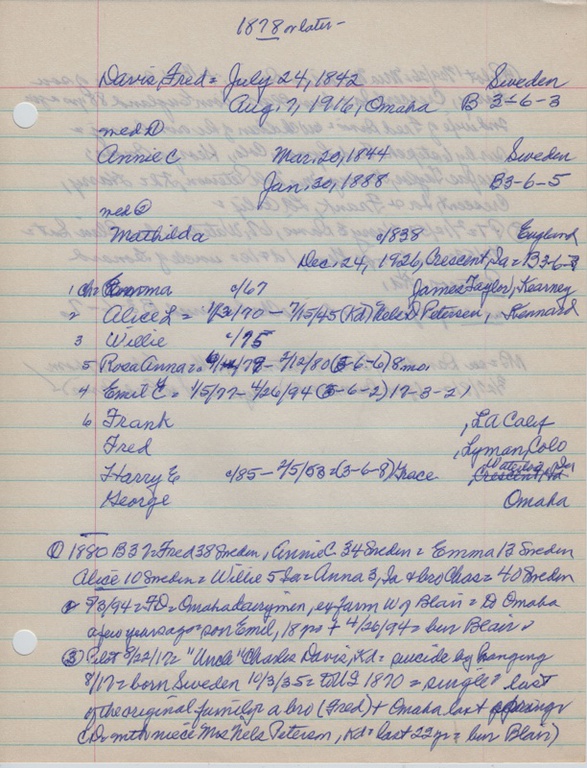 1878 or later -
Davis, Fred = July 24, 1842 Sweden
Aug. 7, 1916, Omaha B 3-6-3
med ①
Annie C Mar. 20, 1844 Sweden
Jan. 30, 1888 B3-6-5
med ②
Mathilda c/1838 England
Dec. 24, 1926, Crescent, Ia = B3-6-3
1 ch = Emma c/67 James Taylor, Kearney
2 Alice L = 70 - 7/15/45 (Kd) Nels Petersen, Kennard
3 Willie c/75
5 Rosa Anna = 79 - 2/12/80 (3-6-6) 8 mo.
4 Emil E = 1/5/77 - 4/26/94 (3-6-2) 17-3-21
6 Frank , LA Calif
Fred , Lyman, Colo
Harry E c/85 - 2/5/53 = (3-6-8) Grace Waterloo, Ia
George Omaha
① 1880 B37 = Fred 38 Sweden, Annie C 34 Sweden = Emma 13 Sweden
Alice 10 Sweden = Willie 5 Ia = Anna 3, Ia & bro Chas = 40 Sweden
5/3/94 = FD = Omaha dairyman, ex farm W of Blair = to Omaha
a few years ago = son Emil, 18 + 4/26/94 = bur Blair
③ Pilot 8/22/17 = "Uncle" Charles Davis, Kd = suicide by hanging
8/17 = born Sweden 10/3/35 = to US 1870 = single = last
of the original family = a bro (Fred) + Omaha last
(D with niece Mrs Nels Petersen, Kd = last 22 yr = bur Blair)